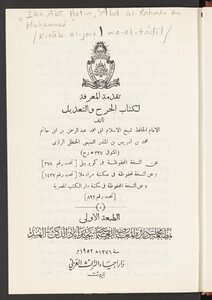 "Ibn Abī Hatim, 'Abd al-Rahmān ibn
Muhammad"
/Kitāb al-jarḥ wa-al-tadīl/
تقدمة المعرفة
لكتاب الجرح والتعديل
تأليف
الإمام الحافظ شيخ الإسلام أبي محمد عبد الرحمن بن أبي حاتم
محمد بن إدريس بن المنذر التميمي الحنظلي الرازي
(المتوفى ٣٢٧ هـ)
عن النسخة المحفوظة في كوپريلي [تحت رقم ٢٧٨]
وعن النسخة المحفوظة في مكتبة مراد ملا [تحت رقم ١٤٢٧]
وعن النسخة المحفوظة في مكتبة دار الكتب المصرية
[تحت رقم ٨٩٢]
الطبعة الأولى
بمطبعة مجلس دائرة المعارف العثمانية بحيدر آباد الدكن الهند
سنة ١٢٧١ هـ ١٩٥٢ م
دار إحياء التراث العربي
بيروت